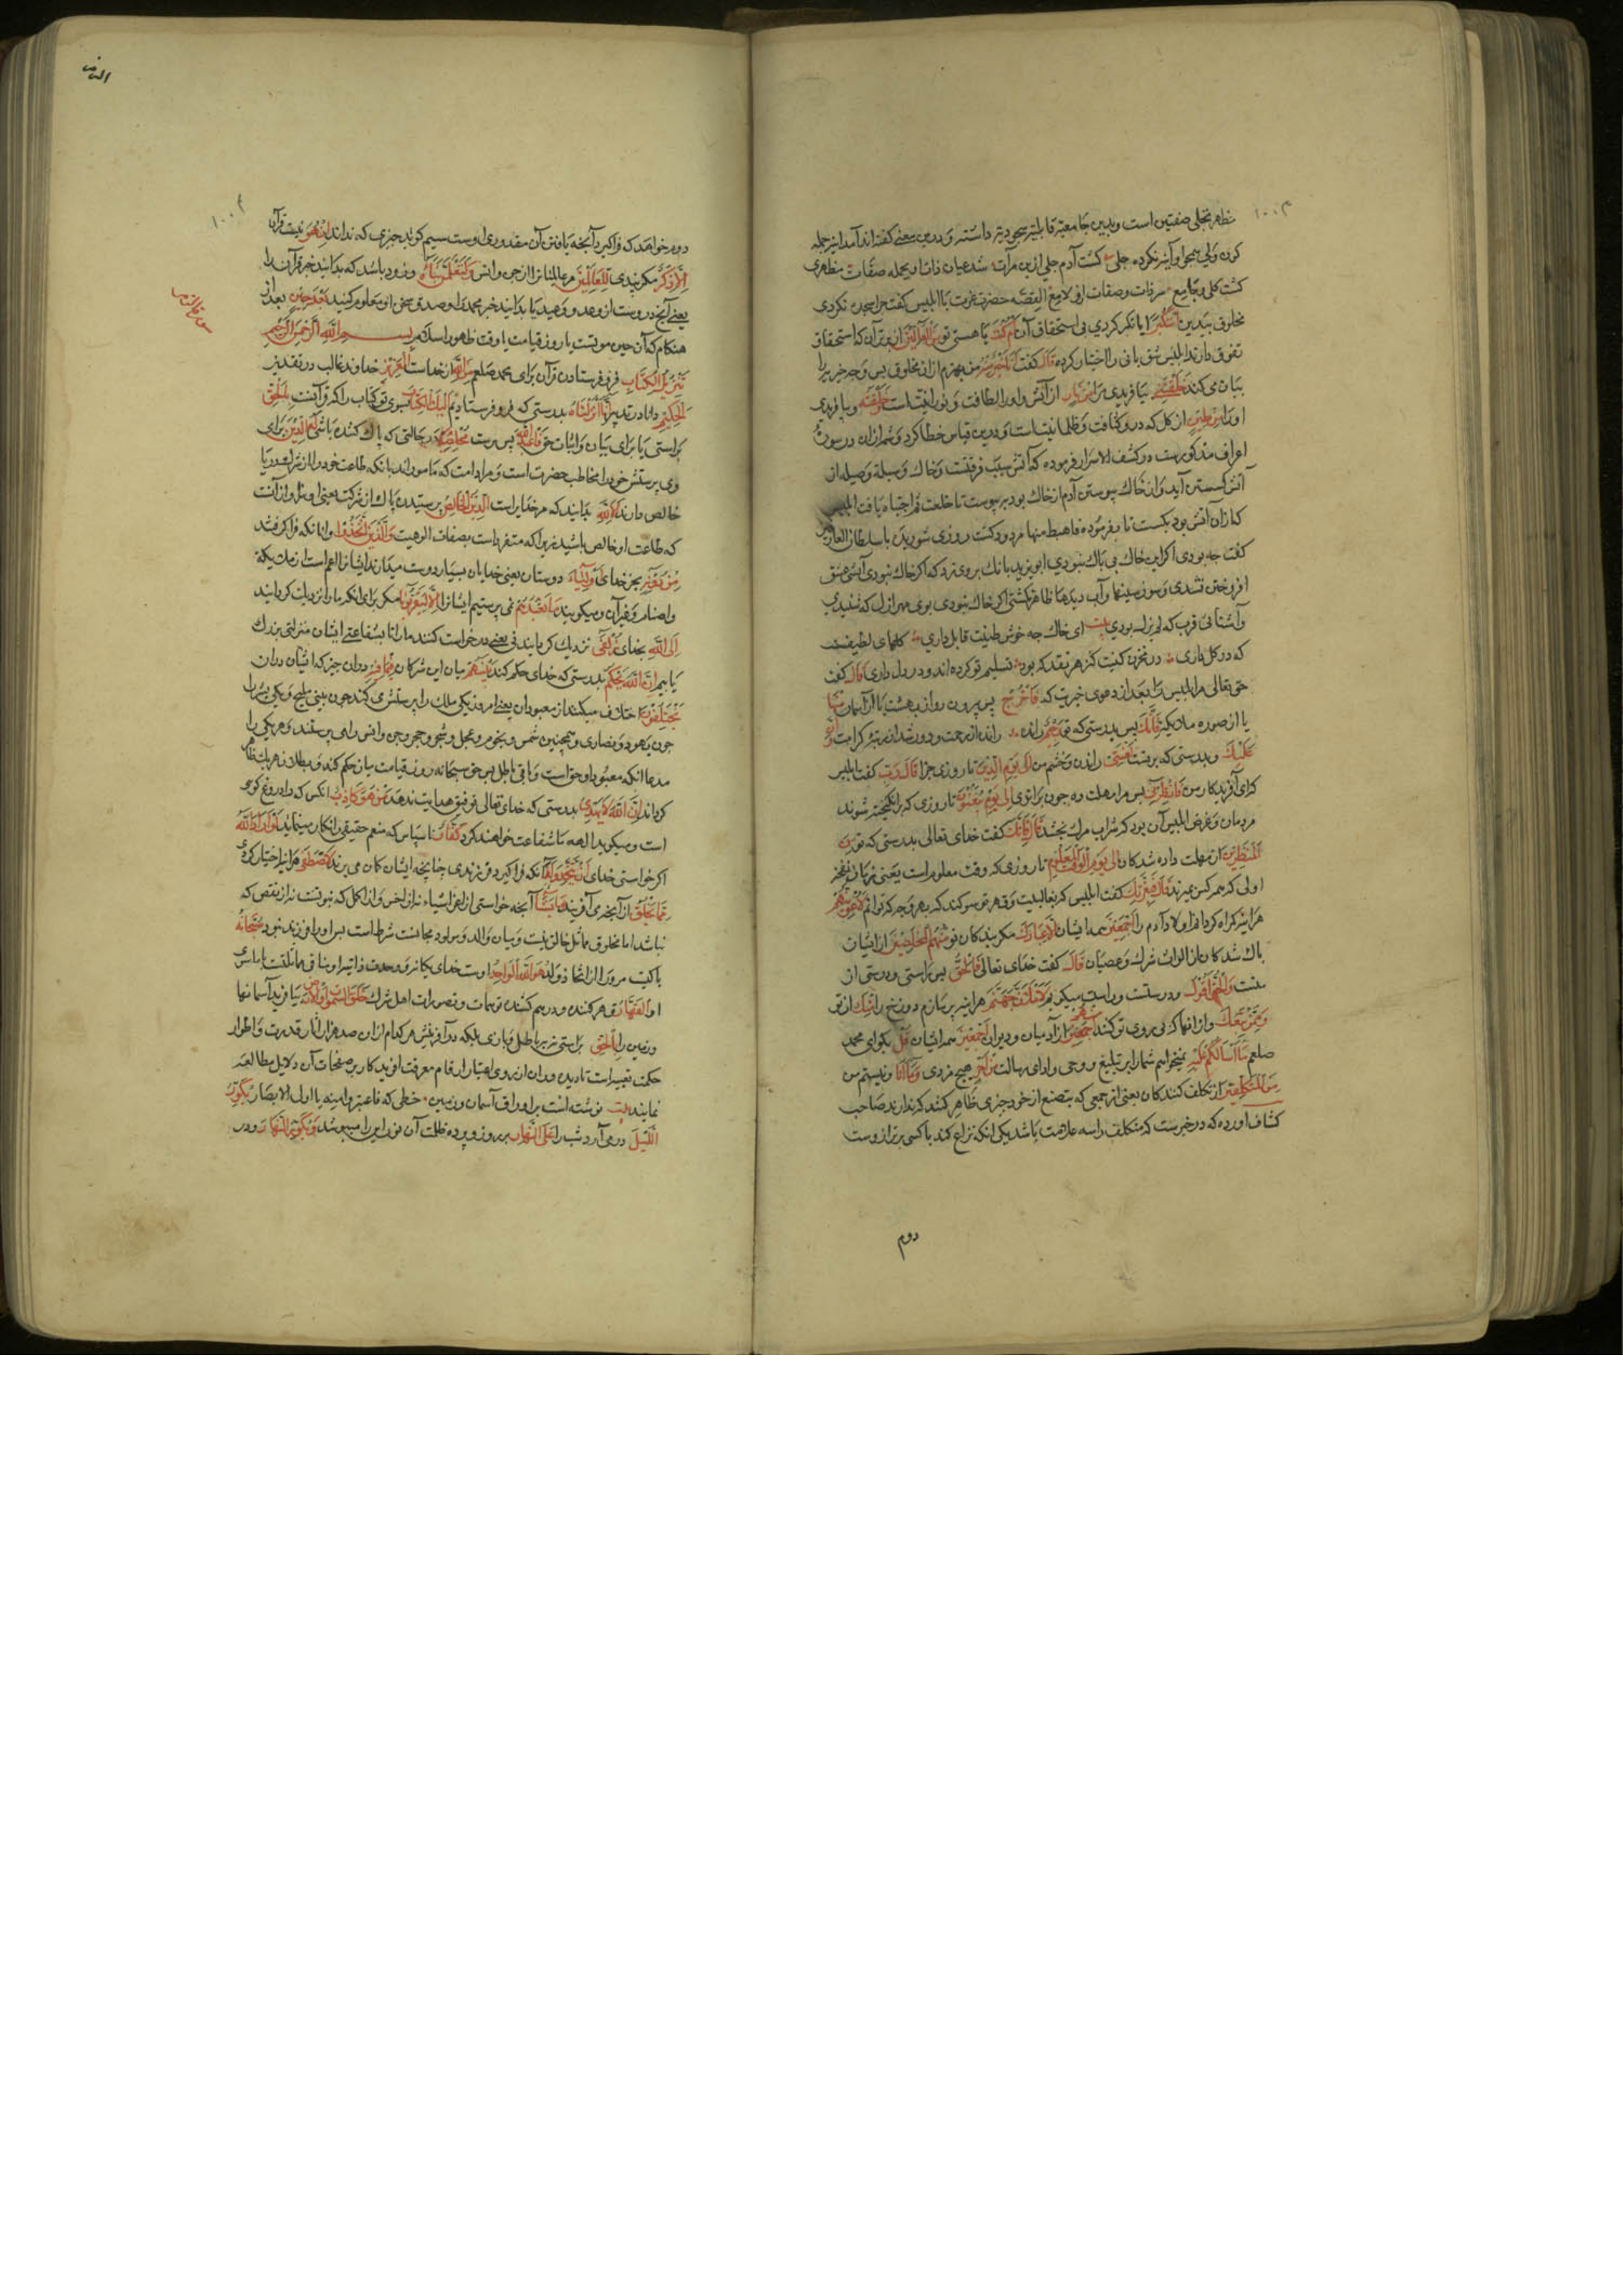 مظهر تجلی صفتین است وبدین جامعیت قابلیت مسجودیه داشته ودرین معنی گفته اند آمد آینه جمله
کون ولی همچو آینه نکرده جلی کشت آدم جلی ازین مرآت شد عیان ذات او بجمله صفات مظهری
کشت کلی وجامع سر ذات وصفات ازو لامع القصه حضرت عزت با ابلیس کفت چرا سجده نکردی
مخلوق بیدین أَسْتَكْبَرْتَ ایا تکبر کردی بی استحقاق آن أَمْ كُنْتَ یا هستی تو مِنَ الْعَالِينَ از برتران که استحقاق
تفوق دارند ابلیس شق ثانی را اختیار کرده قَالَ کفت أَنَا خَيْرٌ مِنْهُ من بهترم ازان مخلوق پس وجه خیریرا
بیان می کند خَلَقْتَنِي بیافریدی مرا مِنْ نَارٍ از آتش واورا لطافت ونورانیت است وَخَلَقْتَهُ وبیافریدی
اورا مِنْ طِينٍ از کل که درو کثافت وظلمانیت است ودرین قیاس خطا کرد وشمه ازان در سوره
اعراف مذکورست در کشف الاسرار فرموده که آتش سبب فرقتست وخاک وسیله وصله از
آتش کسستن آید وازخاک پیوستن آدم از خاک بود بر پیوست تا خلعت ثم اجتباه یافت ابلیس
که ازان آتش بود بکست تا بفرموده فاهبط منها مردود کشت روزی شوریدۀ با سلطان العارفین
کفت چه بودی اکر این خاک بی باک نبودی ابو یزید بانک بروی زد که اکر خاک نبودی آتش عشق
افروخته نشدی وسوز سینها وآب دیدها ظاهر نکشتی اکر خاک نبودی بوی مهر ازل که شنیدی
وآشنای قرب که لم یزل بودی بیت ای خاک چه خوش طینت قابل داری کلهای لطیفست
که در کل داری در مخزن کنت کنز هر نقد که بود تسلیم تو کرده اند ودر دل داری قَالَ کفت
حق تعالی مر ابلیس را بعد از دعوی خیریت که فَاخْرُجْ پس بیرون رو از بهشت یا از آسمان مِنْهَا
یا از صوره ملکیه فَإِنَّكَ پس بدرستی که تو رَجِيمٌ رانده راندۀ از رحمت ودور شدۀ از مرتبۀ کرامت وَإِنَّ
عَلَيْكَ وبدرستی که برتست لَعْنَتِي راندن وخشم من إِلَى يَوْمِ الدِّينِ تا روز جزا قَالَ رَبِّ کفت ابلیس
که ای آفریدکار من فَأَنْظِرْنِي پس مرا مهلت ده چون براندی إِلَى يَوْمِ يُبْعَثُونَ تا روزی که برانکیخته شوند
مردمان وغرض ابلیس آن بود که شراب مرک نچشد قَالَ فَإِنَّكَ کفت خدای تعالی بدرستی که تو مِنَ
الْمُنْظَرِينَ از مهلت داده شدکانی إِلَى يَوْمِ الْوَقْتِ الْمَعْلُومِ تا روزی که وقت معلوم است یعنی زمان نفخه
اولی که همه کس بمیرند قَالَ فَبِعِزَّتِكَ کفت ابلیس که بغالبیت وقهر تو سوکند که بهر وجه که توانم لَأُغْوِيَنَّهُمْ
هر اینه کمراه کردانم اولاد آدم را أَجْمَعِينَ همه ایشان إِلَّا عِبَادَكَ مکر بندکان تو مِنْهُمُ الْمُخْلَصِينَ از ایشان
پاک شدکان از الواث شرک وعصیان قَالَ کفت خدای تعالی فَالْحَقُّ پس راستی ودرستی از
منست وَالْحَقَّ أَقُولُ ودرستست وراست میکویم لَأَمْلَأَنَّ جَهَنَّمَ هر اینه پر سازم دوزخ را مِنْكَ از تو
وَمِمَّنْ تَبِعَكَ واز آنها که پی روی تو کنند مِنْهُمْ از آدمیان ودیوان أَجْمَعِينَ همه ایشان قُلْ بکو ای محمد
صلعم مَا أَسْأَلُكُمْ عَلَيْهِ نمیخواهم شما را بر تبلیغ وحی وادای رسالت مِنْ أَجْرٍ هیچ مزدی وَمَا أَنَا ونیستم من
مِنَ الْمُتَكَلِّفِينَ از تکلف کنندکان یعنی از جمعی که بتصنع از خود چیزی ظاهر کنند که ندارند صاحب
کشاف اورده که در خبرست که متکلف را سه علامت باشد یکی انکه نزاع کند با کسی که برتر ازوست
دوم
دوم خواهد که فراکیرد آنچه یافتن آن نه مقدور اوست سیم کوید چیزی که نداند إِنْ هُوَ نیست قرآن
إِلَّا ذِكْرٌ مکر پندی لِلْعَالَمِينَ مر عالمیانرا از جن وانس وَلَتَعْلَمُنَّ نَبَأَهُ وزود باشد که بدانید خبر قرآن را
یعنی آنچه دروست از وعد ووعید یا بدانید خبر محمد را وصدق سخن او معلوم کنید بَعْدَ حِينٍ بعد از
هنکام که آن حین موتست یا روز قیامت یا وقت ظهور اسلام بسم الله الرحمن الرحیم
تَنْزِيلُ الْكِتَابِ فرو فرستادن قرآن برای محمد صلعم مِنَ اللَّهِ از خداست الْعَزِيزِ خداوند غالب در تقدیر
الْحَكِيمِ دانا در تدبیر إِنَّا أَنْزَلْنَا بدرستی که فرو فرستادیم إِلَيْكَ الْكِتَابَ بسوی تو کتاب را که قرآنست بِالْحَقِّ
براستی یا برای بیان واثبات حق فَاعْبُدِ اللَّهَ پس بپرست مُخْلِصًا در حالتی که پاک کننده باشی لَهُ الدِّينَ برای
وی پرستش خود را مخاطب حضرت است ومراد امت که مامورند بانکه طاعت خود را از شرک وریا
خالص دارند أَلَا لِلَّهِ بدانید که مر خدایراست الدِّينُ الْخَالِصُ پرستیدن پاک از شرکت یعنی او سزاوار آنست
که طاعت او خالص باشد زیرا که متفردست بصفات الوهیت وَالَّذِينَ اتَّخَذُوا وانانکه فراکرفتند
مِنْ دُونِهِ بجز خدای أَوْلِيَاءَ دوستان یعنی خدایان بسیار دوست میدارند ایشانرا اعم است از ملائکه
واصنام وغیر آن ومیکویند مَا نَعْبُدُهُمْ نمی پرستیم ایشانرا إِلَّا لِيُقَرِّبُونَا مکر برای انکه ما را نزدیک کردانند
إِلَى اللَّهِ بخدای زُلْفَى نزدیک کردانیدنی یعنی درخواست کنند ما را تا بشفاعت ایشان منزلتی بزرک
یابیم إِنَّ اللَّهَ يَحْكُمُ بدرستی که خدای حکم کند بَيْنَهُمْ میان این مشرکان فِي مَا هُمْ فِيهِ در ان چیز که ایشان دران
يَخْتَلِفُونَ اختلاف میکنند از معبودان یعنی امروز یکی ملک را پرستش می کند
چون یهود ونصاری وهمچنین شمس ونجوم وعجل وشجر وحجر وجن وانس را می پرستند وهر یکی را
مدعا انکه معبود او حق است وباقی باطل پس حق سبحانه روز قیامت میان حکم کند وبطلان هر یک ظاهر
کرداند إِنَّ اللَّهَ لَا يَهْدِي بدرستی که خدای تعالی توفیق هدایت ندهد مَنْ هُوَ كَاذِبٌ انکس که او دروغ کوی
است ومیکوید الهه ما شفاعت خواهند کرد كَفَّارٌ ناسپاس که منعم حقیقی را انکار مینماید لَوْ أَرَادَ اللَّهُ
اکر خواستی خدای أَنْ يَتَّخِذَ وَلَدًا آنکه فراکیرد فرزندی چنانچه ایشان کمان می برند لَاصْطَفَى هر اینه اختیار کردی
مِمَّا يَخْلُقُ از آنچه می آفریند مَا يَشَاءُ آنچه خواستی از اعز اشیاء نه از اخس واز اکمل که بنوتست نه از نقص که
نباشد اما مخلوق مماثل خالق نیست ومیان والد ومولود مجانست شرط است پس او را فرزند نبود سُبْحَانَهُ
پاکیست مر ورا از اتخاذ ولد هُوَ اللَّهُ الْوَاحِدُ اوست خدای یکانه وحدت ذاتی او منافی مماثلتست باسائر
او الْقَهَّارُ قهر کننده ودرهم شکننده توهمات وتصورات اهل شرک خَلَقَ السَّمَاوَاتِ وَالْأَرْضَ بیافرید آسمانها
وزمین را بِالْحَقِّ براستی نه بباطل وبازی بلکه در آفرینش هر کدام ازان صد هزار آثار قدرت واطوار
حکمت تعبیه است تا دیده وران از روی اعتبار ارقام معرفت افریدکار بر صفحات آن دلایل مطالعه
نمایند بیت نوشته است بر اوراق آسمان وزمین خطی که فاعتبروا منه یا اولی الابصار يُكَوِّرُ
اللَّيْلَ درمی آرد شب را عَلَى النَّهَارِ بر روز وپرده ظلمت آن نور این را میپوشد وَيُكَوِّرُ النَّهَارَ ودر